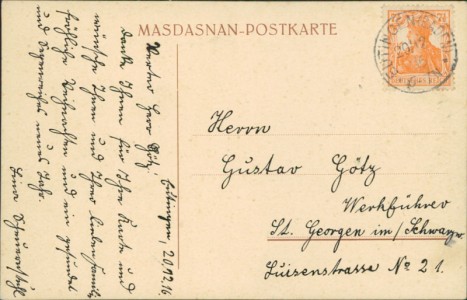 MASDASNAN-POSTKARTE
Tuttlingen, 20.12.16
Werter Herr Götz!
danke Ihnen für Ihre Karte und
wünsche Ihnen und Ihrer Familie
fröhliche Weihnachten und ein gesundes
und neues Jahr.
Herrn
Gustav Götz
Werkführer
St. Georgen im/Schwarzw.
Luisenstrasse No 21.